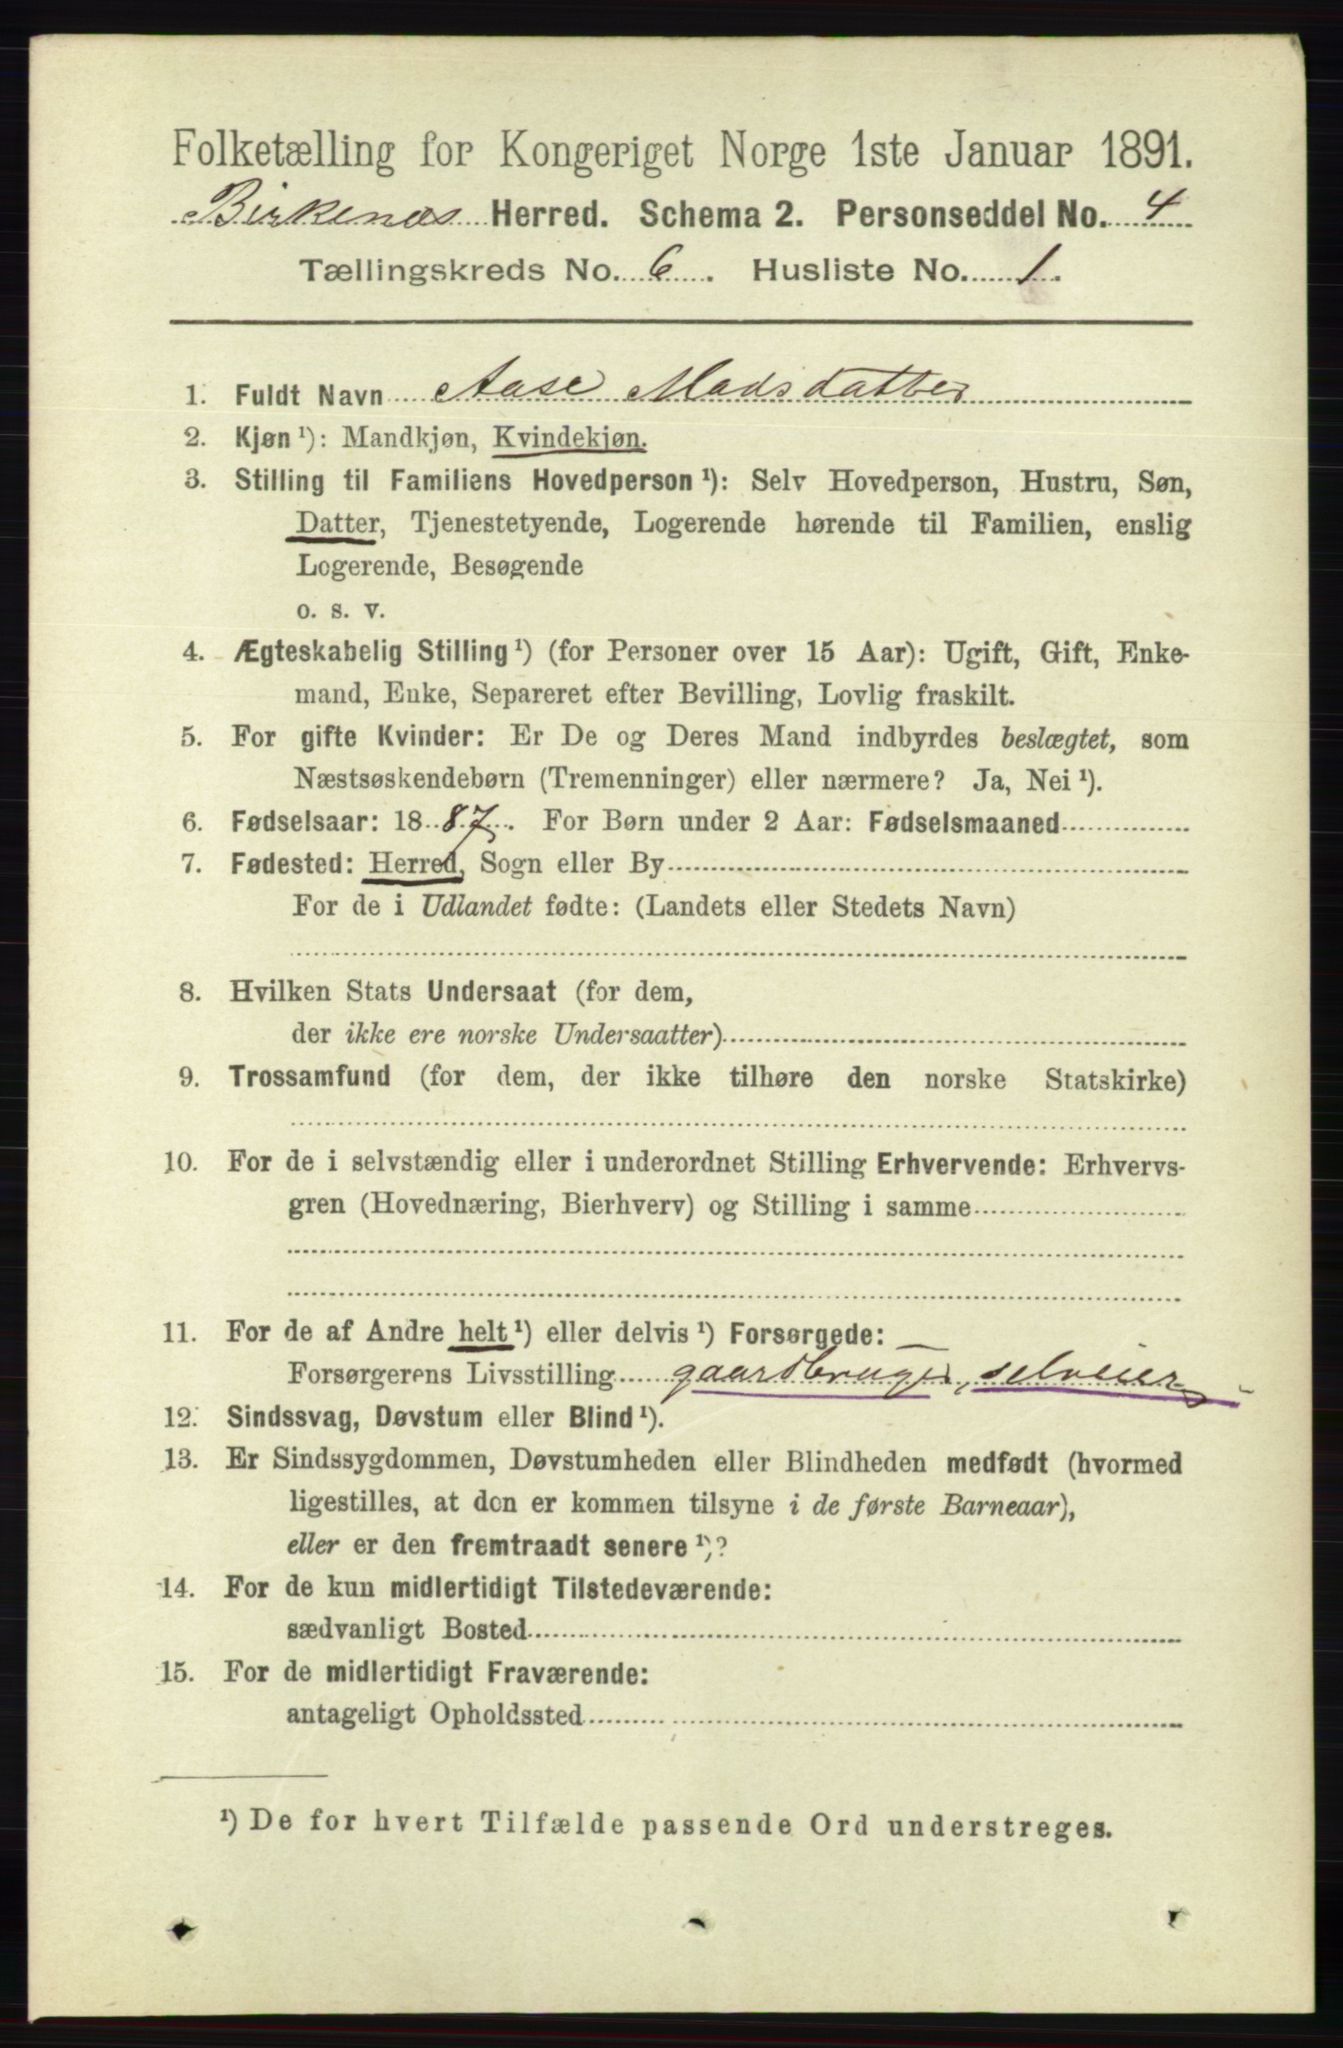 Folketælling for Kongeriget Norge 1ste Januar 1891.
Birkenæs Herred. Schema 2. Personseddel No. 4
Tællingskreds No. 6. Husliste No. 1.
1. Fuldt Navn Aase Madsdatter
2. Kjøn ¹): Mandkjøn, Kvindekjøn.
3. Stilling til Familiens Hovedperson ¹): Selv Hovedperson, Hustru, Søn,
Datter, Tjenestetyende, Logerende hørende til Familien, enslig
Logerende, Besøgende
o. s. v.
4. Ægteskabelig Stilling ¹) (for Personer over 15 Aar): Ugift, Gift, Enke-
mand, Enke, Separeret efter Bevilling, Lovlig fraskilt.
5. For gifte Kvinder: Er De og Deres Mand indbyrdes beslægtet, som
Næstsøskendebørn (Tremenninger) eller nærmere? Ja, Nei ¹).
6. Fødselsaar: 1887. For Børn under 2 Aar: Fødselsmaaned
7. Fødested: Herred, Sogn eller By
For de i Udlandet fødte: (Landets eller Stedets Navn)
8. Hvilken Stats Undersaat (for dem,
der ikke ere norske Undersaatter)
9. Trossamfund (for dem, der ikke tilhøre den norske Statskirke)
10. For de i selvstændig eller i underordnet Stilling Erhvervende: Erhvervs-
gren (Hovednæring, Bierhverv) og Stilling i samme
11. For de af Andre helt ¹) eller delvis ¹) Forsørgede:
Forsørgerens Livsstilling gaardbruger, selveier
12. Sindssvag, Døvstum eller Blind ¹).
13. Er Sindssygdommen, Døvstumheden eller Blindheden medfødt (hvormed
ligestilles, at den er kommen tilsyne i de første Barneaar),
eller er den fremtraadt senere ¹)?
14. For de kun midlertidigt Tilstedeværende:
sædvanligt Bosted
15. For de midlertidigt Fraværende:
antageligt Opholdssted
¹) De for hvert Tilfælde passende Ord understreges.